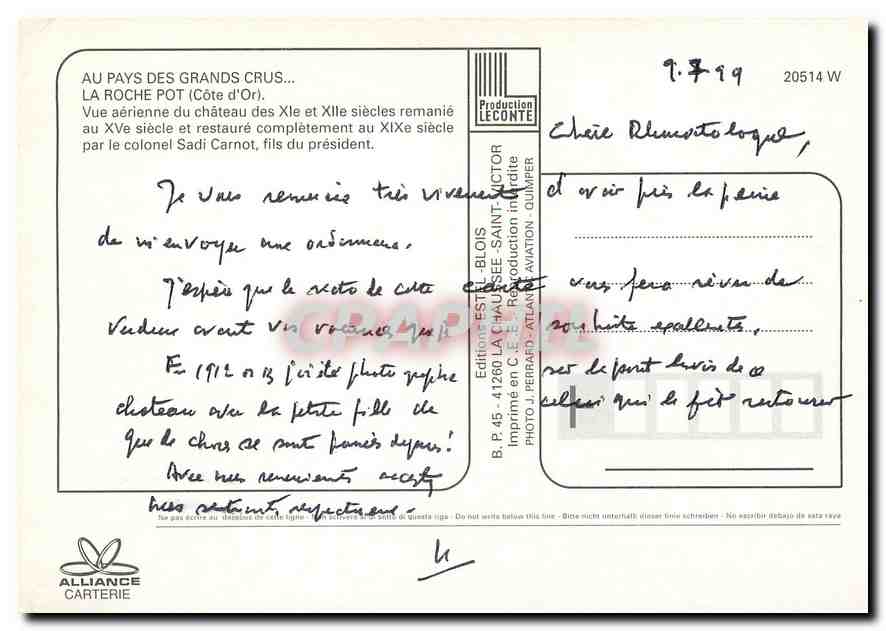 AU PAYS DES GRANDS CRUS...
LA ROCHE POT (Côte d'Or).
Vue aérienne du château des XIe et XIIe siècles remanié
au XVe siècle et restauré complètement au XIXe siècle
par le colonel Sadi Carnot, fils du président.
Production
LECONTE
9.7.99
20514 W
Chère Rhumatologue,
Je vous remercie très vivement d'avoir pris la peine
de m'envoyer une ordonnance.
J'espère que le recto de cette carte vous fera rêver de
verdeur avant vos vacances que je souhaite excellentes.
En 1912 ou 13 j'ai été photographié sur le pont levis de ce
château avec la petite fille de celui qui le fit restaurer
Que de choses se sont passées depuis!
Avec mes remerciements acceptez
mes sentiments respectueux.
Editions ESTEL -BLOIS
B. P. 45 - 41260 LA CHAUSSÉE -SAINT- VICTOR
Imprimé en C.E.E. Reproduction interdite
PHOTO J. PERRARD - ATLANTE AVIATION - QUIMPER
CPAPHIL
Ne pas écrire au dessous de cette ligne - Non scrivere al di sotto di questa riga - Do not write below this line - Bitte nicht unterhalb dieser linie schreiben - No escribir debajo de esta raya
ALLIANCE
CARTERIE